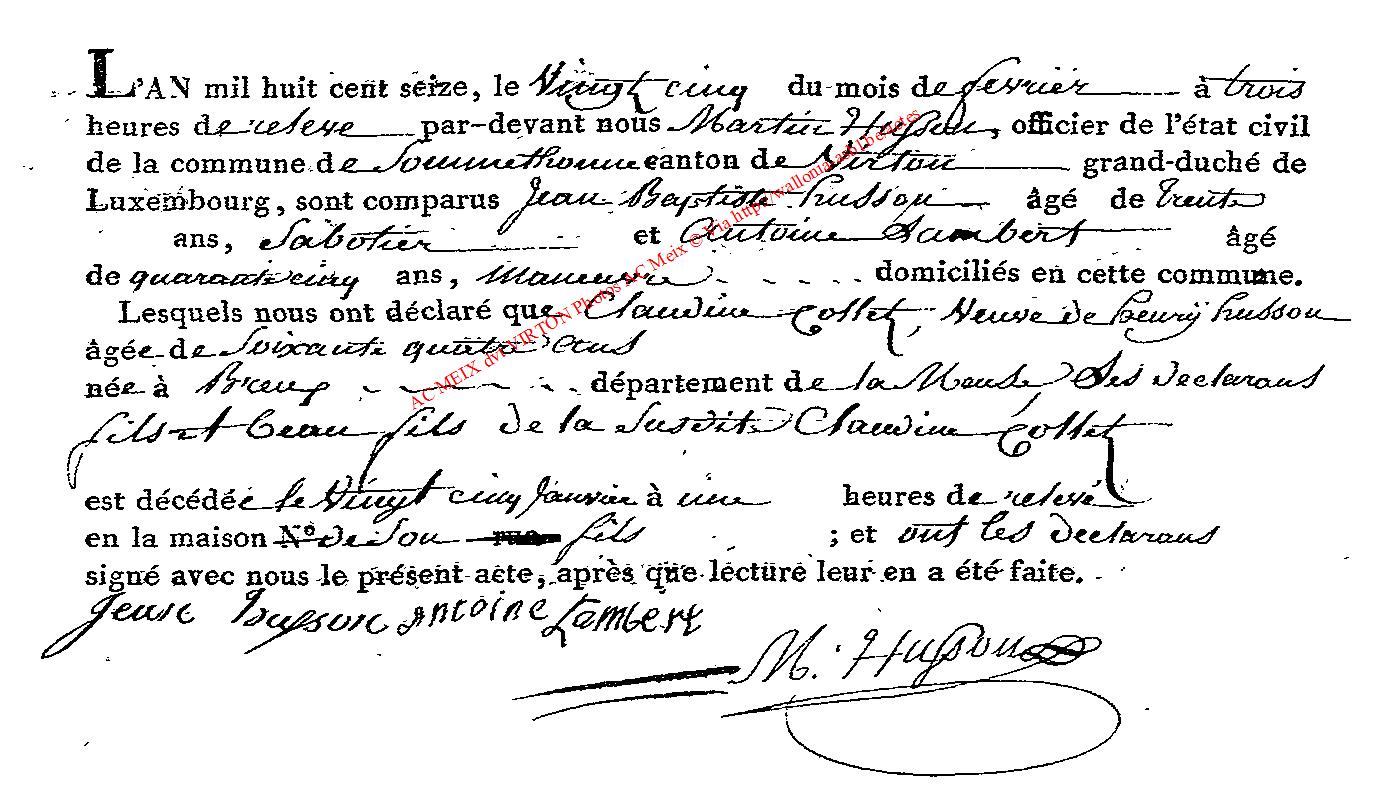 L'AN mil huit cent seize, le Vingt cinq du mois de fevrier à trois
heures de releve par-devant nous Martin Husson, officier de l'état civil
de la commune de Sommethonne canton de Virton grand-duché de
Luxembourg, sont comparus Jean Baptiste husson âgé de trente
ans, Sabotier et Antoine Lambert âgé
de quarante cinq ans, Maneuvre domiciliés en cette commune.
Lesquels nous ont déclaré que Claudine Collet, Veuve de henrÿ husson
âgée de Soixante quatre ans
née à département de la Meuse Les declarans
fils et beau fils de la Susdite Claudine Collet
est décédée le Vingt cinq Janvier à une heures de relevé
en la maison N.º de Son rue fils ; et ont les declarans
signé avec nous le présent acte, après que lecture leur en a été faite.
Jean husson antoine Lambert
M. Husson
AC MEIX dvt VIRTON Photos AC Meix © Via